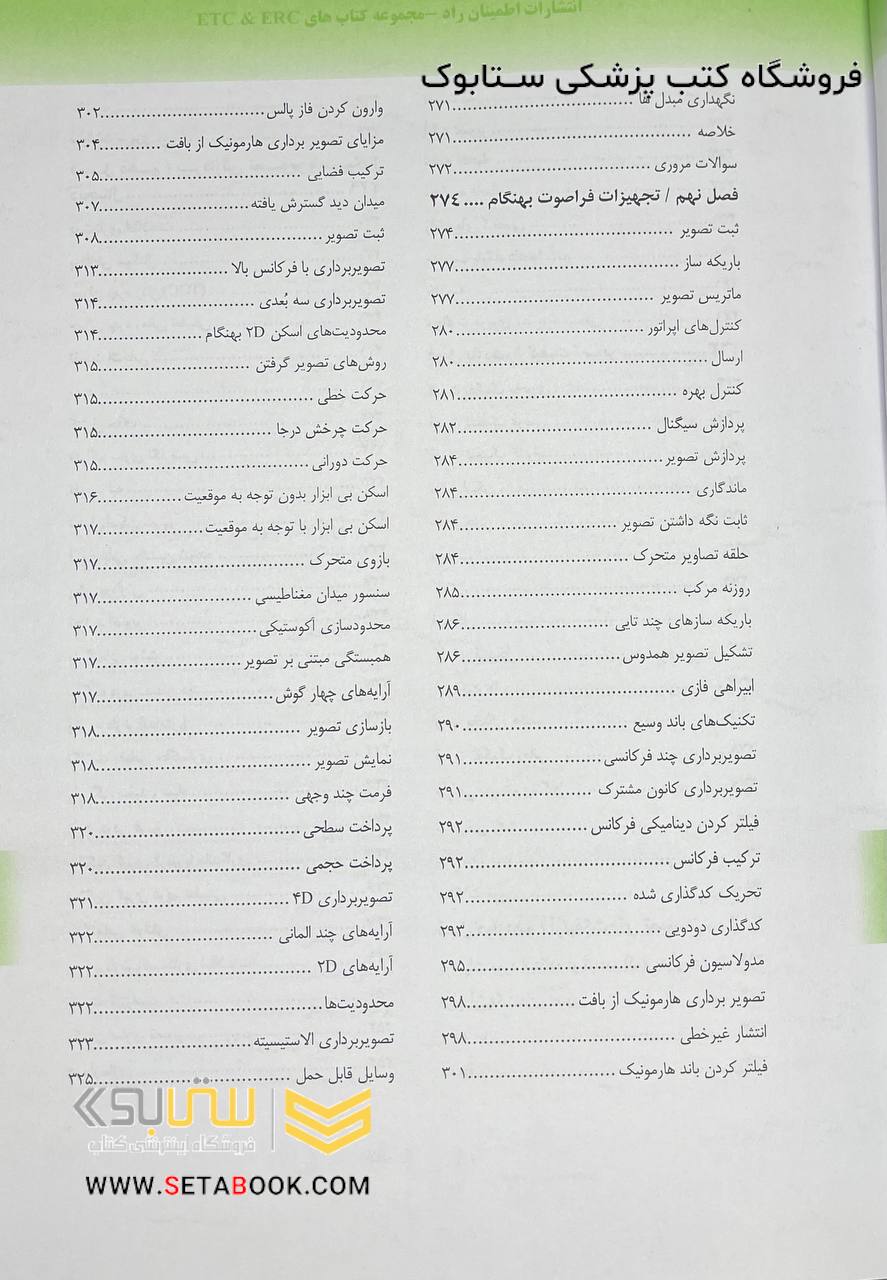 انتشارات اطمینان راد –مجموعه کتاب های ETC & ERC
فروشگاه کتب پزشکی ستابوک
نگهداری مبدل ها ..... ۲۷۱
خلاصه ..... ۲۷۱
سوالات مروری ..... ۲۷۲
فصل نهم / تجهیزات فراصوت بهنگام .... ۲۷۴
ثبت تصویر ..... ۲۷۴
باریکه ساز ..... ۲۷۷
ماتریس تصویر ..... ۲۷۷
کنترل‌های اپراتور ..... ۲۸۰
ارسال ..... ۲۸۰
کنترل بهره ..... ۲۸۱
پردازش سیگنال ..... ۲۸۲
پردازش تصویر ..... ۲۸۴
ماندگاری ..... ۲۸۴
ثابت نگه داشتن تصویر ..... ۲۸۴
حلقه تصاویر متحرک ..... ۲۸۴
روزنه مرکب ..... ۲۸۵
باریکه سازهای چند تایی ..... ۲۸۶
تشکیل تصویر همدوس ..... ۲۸۶
ابیراهی فازی ..... ۲۸۹
تکنیک‌های باند وسیع ..... ۲۹۰
تصویربرداری چند فرکانسی ..... ۲۹۱
تصویربرداری کانون مشترک ..... ۲۹۱
فیلتر کردن دینامیکی فرکانس ..... ۲۹۲
ترکیب فرکانس ..... ۲۹۲
تحریک کدگذاری شده ..... ۲۹۲
کدگذاری دودویی ..... ۲۹۳
مدولاسیون فرکانسی ..... ۲۹۵
تصویر برداری هارمونیک از بافت ..... ۲۹۸
انتشار غیرخطی ..... ۲۹۸
فیلتر کردن باند هارمونیک ..... ۳۰۱
وارون کردن فاز پالس ..... ۳۰۲
مزایای تصویر برداری هارمونیک از بافت ..... ۳۰۴
ترکیب فضایی ..... ۳۰۵
میدان دید گسترش یافته ..... ۳۰۷
ثبت تصویر ..... ۳۰۸
تصویربرداری با فرکانس بالا ..... ۳۱۳
تصویربرداری سه بُعدی ..... ۳۱۴
محدودیت‌های اسکن ۲D بهنگام ..... ۳۱۴
روش‌های تصویر گرفتن ..... ۳۱۵
حرکت خطی ..... ۳۱۵
حرکت چرخش درجا ..... ۳۱۵
حرکت دورانی ..... ۳۱۵
اسکن بی ابزار بدون توجه به موقعیت ..... ۳۱۶
اسکن بی ابزار با توجه به موقعیت ..... ۳۱۷
بازوی متحرک ..... ۳۱۷
سنسور میدان مغناطیسی ..... ۳۱۷
محدودسازی آکوستیکی ..... ۳۱۷
همبستگی مبتنی بر تصویر ..... ۳۱۷
آرایه‌های چهار گوش ..... ۳۱۷
بازسازی تصویر ..... ۳۱۸
نمایش تصویر ..... ۳۱۸
فرمت چند وجهی ..... ۳۱۸
پرداخت سطحی ..... ۳۲۰
پرداخت حجمی ..... ۳۲۰
تصویربرداری ۴D ..... ۳۲۱
آرایه‌های چند المانی ..... ۳۲۲
آرایه‌های ۲D ..... ۳۲۲
محدودیت‌ها ..... ۳۲۲
تصویربرداری الاستیسیته ..... ۳۲۳
وسایل قابل حمل ..... ۳۲۵
ستابوک
فروشگاه اینترنتی کتاب
WWW.SETABOOK.COM